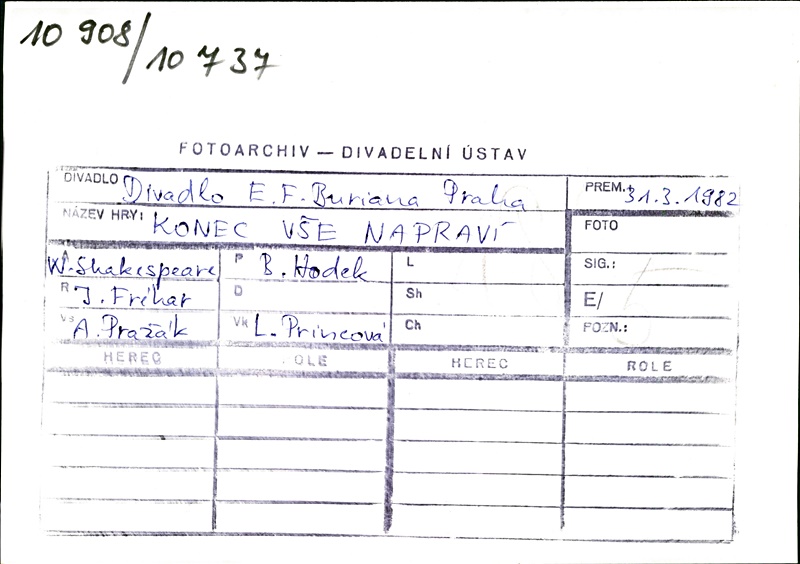 10 908/10 737
FOTOARCHIV — DIVADELNÍ ÚSTAV
DIVADLO Divadlo E. F. Buriana Praha PREM. 31.3.1982
NÁZEV HRY: KONEC VŠE NAPRAVÍ FOTO
A W. Shakespeare P B. Hodek L SIG.:
R J. Fréhar D Sh E/
Vs A. Pražák Vk L. Princová Ch POZN.:
HEREC OLE HEREC ROLE